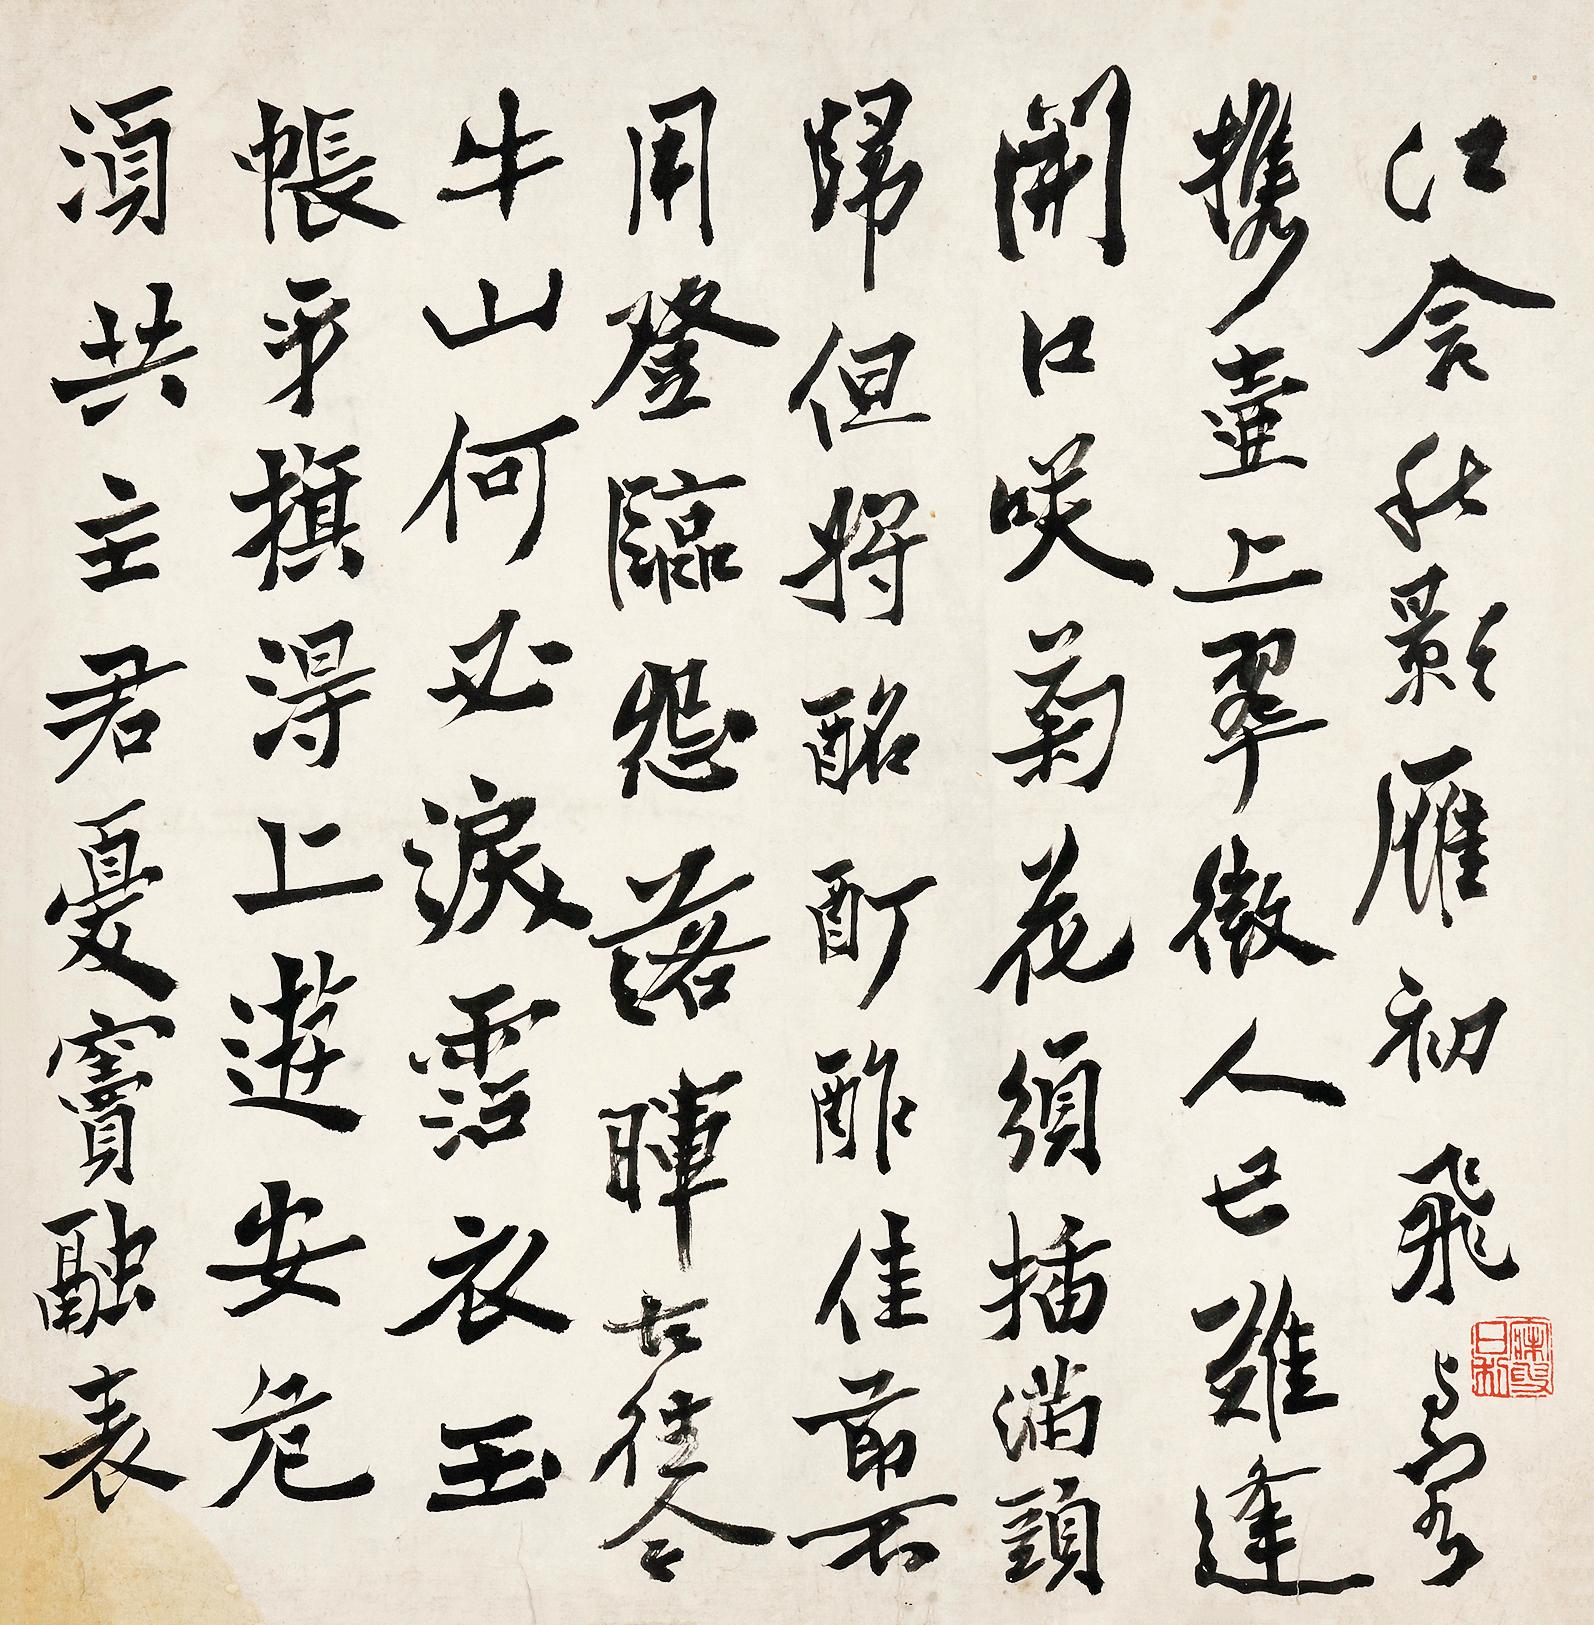 江含秋影雁初飛与客
携壺上翠微人世難逢
開口咲菊花須插滿頭
歸但將酩酊酬佳節不
用登臨怨落暉古往今
牛山何必淚霑衣玉
帳牙旗得上遊安危
須共主君憂竇融表